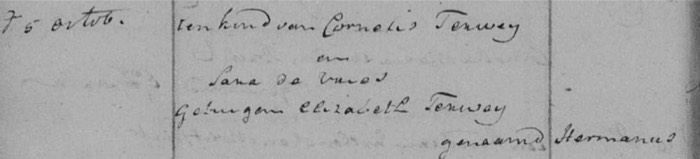 5 octob. een kind van Cornelis Tenwey
en
Sara de vries
Getuigen Elizabeth Tenwey
genaamd Hermanus